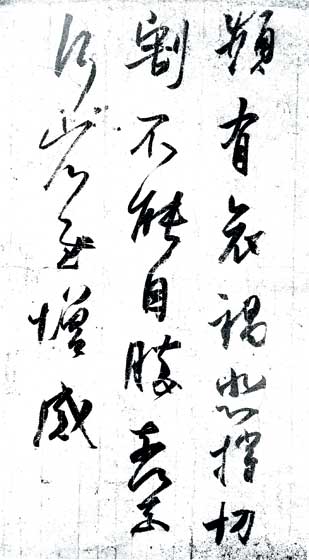 頻有哀禍悲摧切
割不能自勝奈
何省慰增感